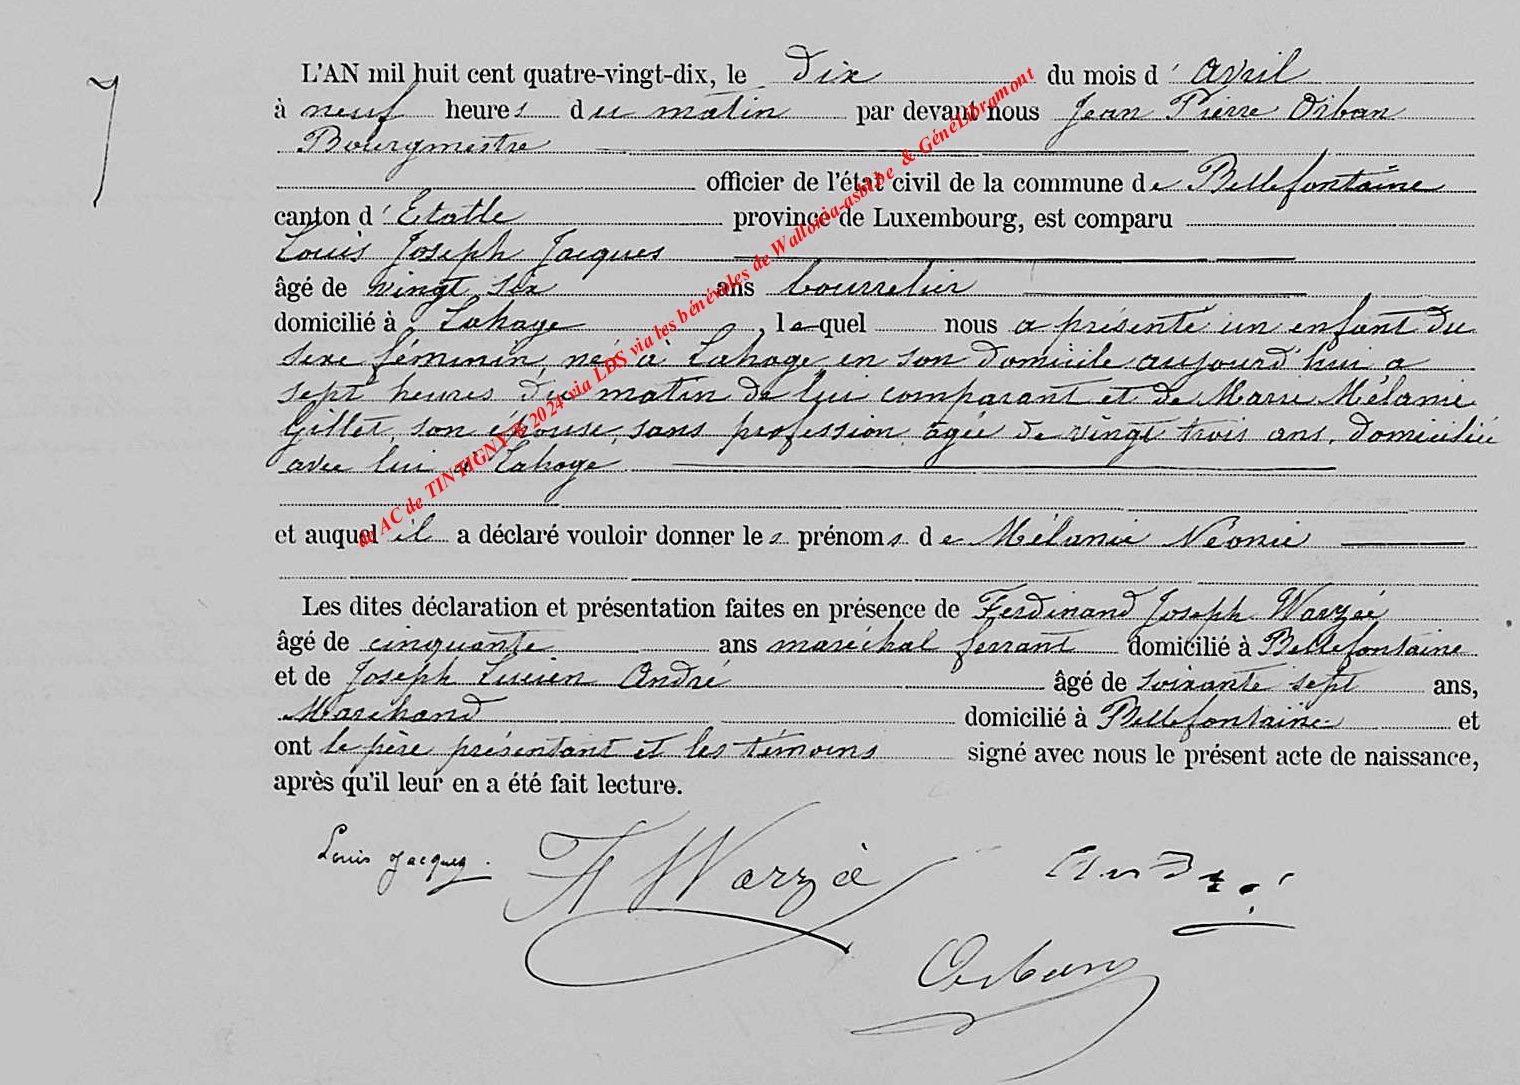 7
L'AN mil huit cent quatre-vingt-dix, le dix du mois d' avril
à neuf heures du matin par devant nous Jean Pierre Orban
Bourgmestre
officier de l'état civil de la commune de Bellefontaine
canton d' Etalle province de Luxembourg, est comparu
Louis Joseph Jacques
âgé de vingt six ans bourrelier
domicilié à Lahage, lequel nous a présenté un enfant du
sexe féminin, né à Lahage en son domicile aujourd'hui a
sept heures du matin de lui comparant et de Marie Mélanie
Gillet, son épouse, sans profession, agée de vingt trois ans, domiciliée
avec lui à Lahage
et auquel il a déclaré vouloir donner les prénoms de Mélanie Néonie
Les dites déclaration et présentation faites en présence de Ferdinand Joseph Warzée
âgé de cinquante ans maréchal ferrant domicilié à Bellefontaine
et de Joseph Lucien André âgé de soixante sept ans,
Marchand domicilié à Bellefontaine et
ont le père présentant et les témoins signé avec nous le présent acte de naissance,
après qu'il leur en a été fait lecture.
Louis Jacques. F Warzée André
Orban
de AC de TINTIGNY © 2024 via LDS via les bénévoles de Wallonia-asbl.be & GénéLibramont